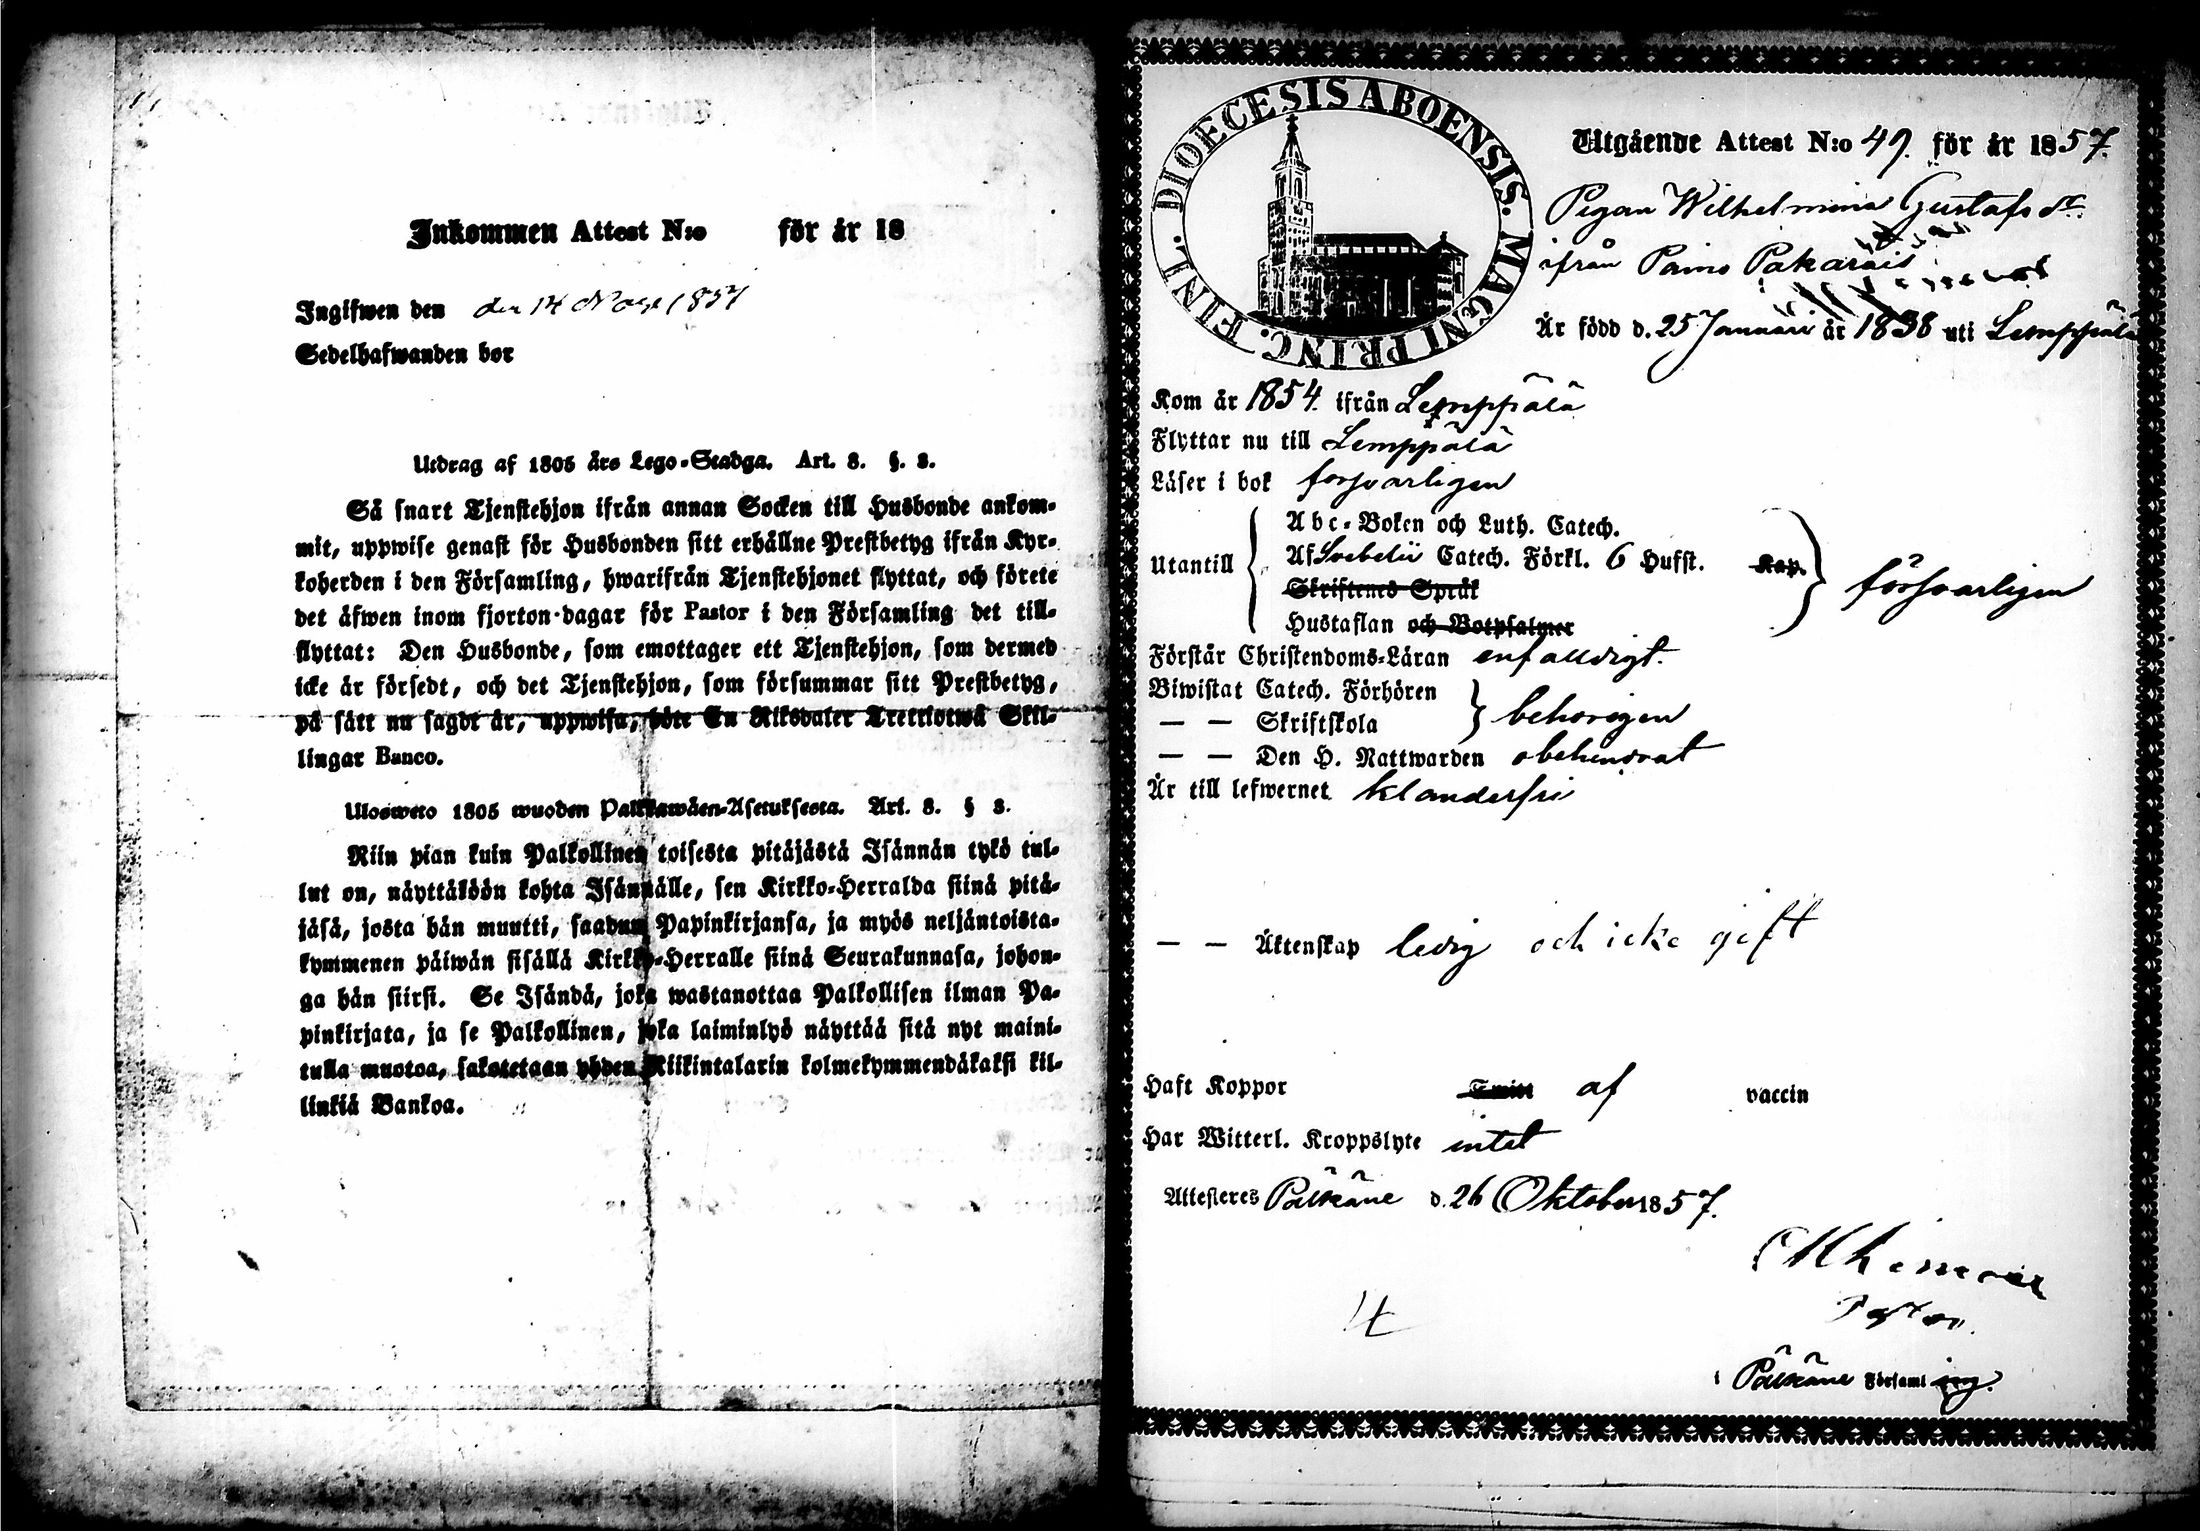 Inkommen Attest N:o för år 18
Ingifwen den den 14 Nov 1857
Sedelhafwanden bor
Utdrag af 1805 års Lego-Stadga. Art. 8. §. 3.
Så snart Tjenstehjon ifrån annan Socken till Husbonde ankom-
mit, uppwise genast för Husbonden sitt erhållne Prestbetyg ifrån Kyr-
koherden i den Församling, hwarifrån Tjenstehjonet flyttat, och förete
det äfwen inom fjorton dagar för Pastor i den Församling det till-
flyttat: Den Husbonde, som emottager ett Tjenstehjon, som dermed
icke är försedt, och det Tjenstehjon, som försummar sitt Prestbetyg,
på sätt nu sagdt är, uppwisa, böte En Riksdaler Trettiotwå Skil-
lingar Banco.
Ulosweto 1805 wuoden Palkkawäen-Asetuksesta. Art. 8. § 3.
Niin pian kuin Palkollinen toisesta pitäjästä Isännän tykö tul-
lut on, näyttäköön kohta Isännälle, sen Kirkko-Herralda siinä pitä-
jäsä, josta hän muutti, saadun Papinkirjansa, ja myös neljäntoista-
kymmenen päiwän sisällä Kirkko-Herralle siinä Seurakunnasa, johon-
ga hän siirsi. Se Isändä, joka wastanottaa Palkollisen ilman Pa-
pinkirjata, ja se Palkollinen, joka laiminlyö näyttää sitä nyt maini-
tulla muotoa, sakotetaan yhden Riikintalarin kolmekymmendäkaksi kil-
linkiä Bankoa.
DIOECESIS ABOENSIS. MAGNI PRINC. FINL.
Utgående Attest N:o 49. för år 1857.
Pigan Wilhelmina Gustafs dr.
ifrån Paino Pakarais
Är född d. 25 Januari år 1838 uti Lemppälä
Kom år 1854. ifrån Lemppälä
Flyttar nu till Lemppälä
Läser i bok försvarligen
Abc-Boken och Luth. Catech.
Utantill Af Svebelii Catech. Förkl. 6 Hufst. Kap. försvarligen
Skriftenes Språk
Hustaflan och Botpsalmer
Förstår Christendoms-Läran enfaldigt.
Biwistat Catech. Förhören
— — Skriftskola behörigen
— — Den H. Nattwarden obehindrat
Är till lefwernet klanderfri
— — Äktenskap ledig och icke gift
Haft Koppor af vaccin
Har Witterl. Kroppslyte intet
Attesteres Pälkäne d. 26 Oktober 1857.
Pastor.
4
i Pälkäne Församling.